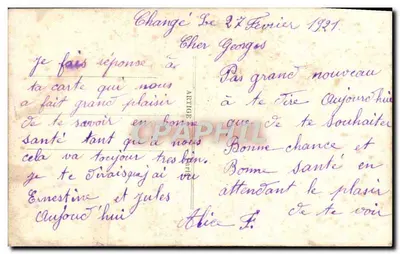 Changé Le 27 Fevrier 1921
Cher Georges
Je fais réponse à
ta carte qui nous
a fait grand plaisir
de te savoir en bonne
santé tant qu'à nous
cela va toujour tres bien.
je te dirais que j'ai vu
Ernestine et jules
Aujourd'hui
Pas grand nouveau
à te dire Aujourd'hui
que de te souhaiter
Bonne chance et
Bonne santé en
attendant le plasir
de te voir
Alice F.